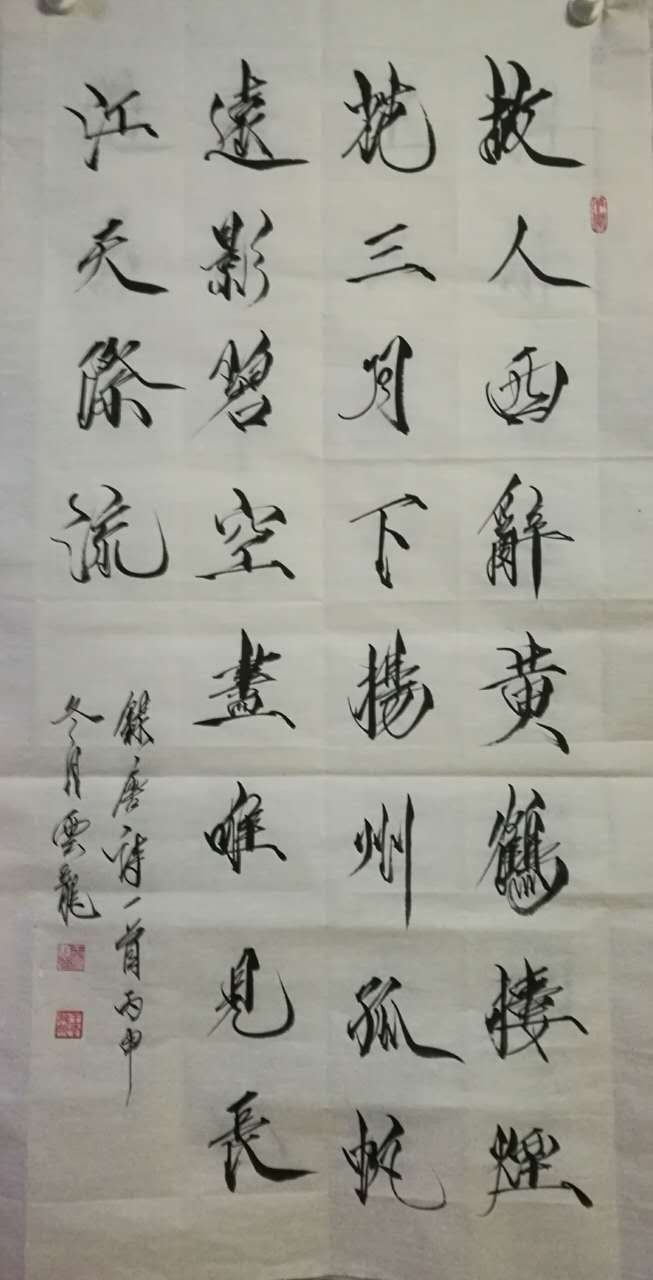 故人西辭黃鶴樓煙
花三月下揚州孤帆
遠影碧空盡唯見長
江天際流
錄唐詩一首丙申
冬月雲龍